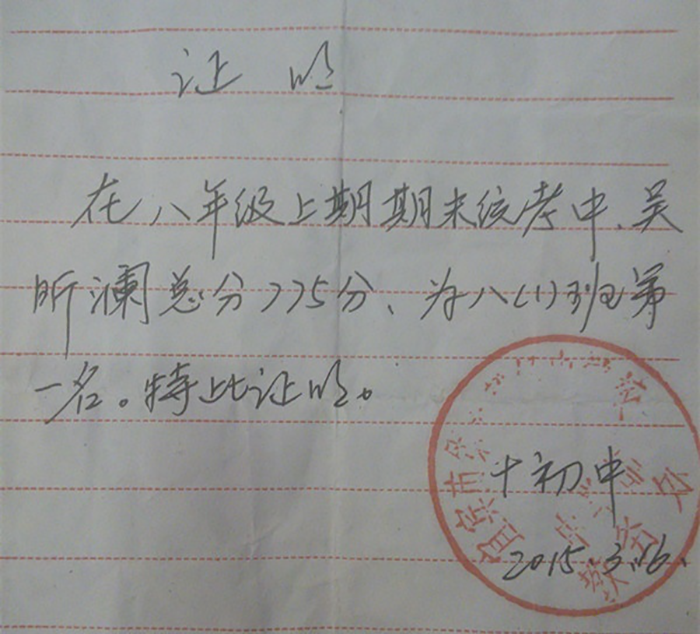 证 明
在八年级上期期末统考中、吴
昕澜总分775分、为八(1)班第
一名。特此证明。
十初中
2015.3.16.
宜宾市